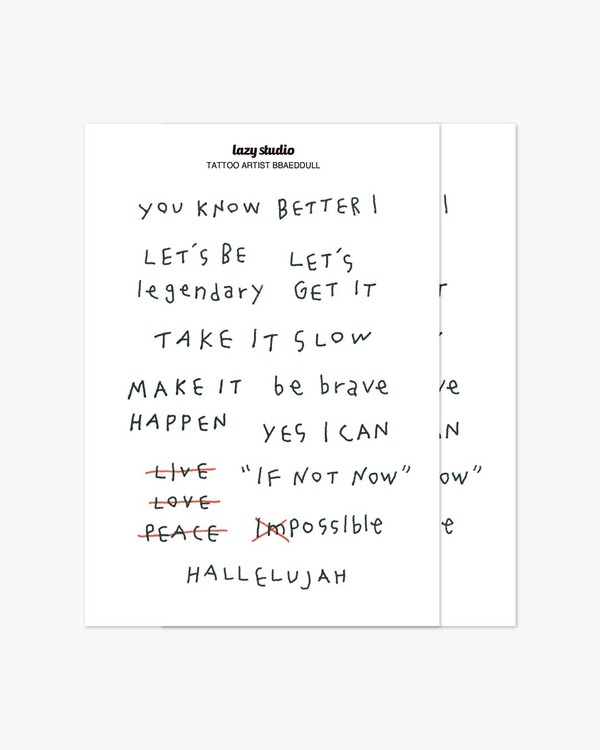 lazy studio
TATTOO ARTIST BBAEDDULL
YOU KNOW BETTER I
LET'S BE
legendary
LET'S
GET IT
TAKE IT SLOW
MAKE IT
HAPPEN
be brave
YES I CAN
LIVE
LOVE
PEACE
"IF NOT NOW"
Impossible
HALLELUJAH